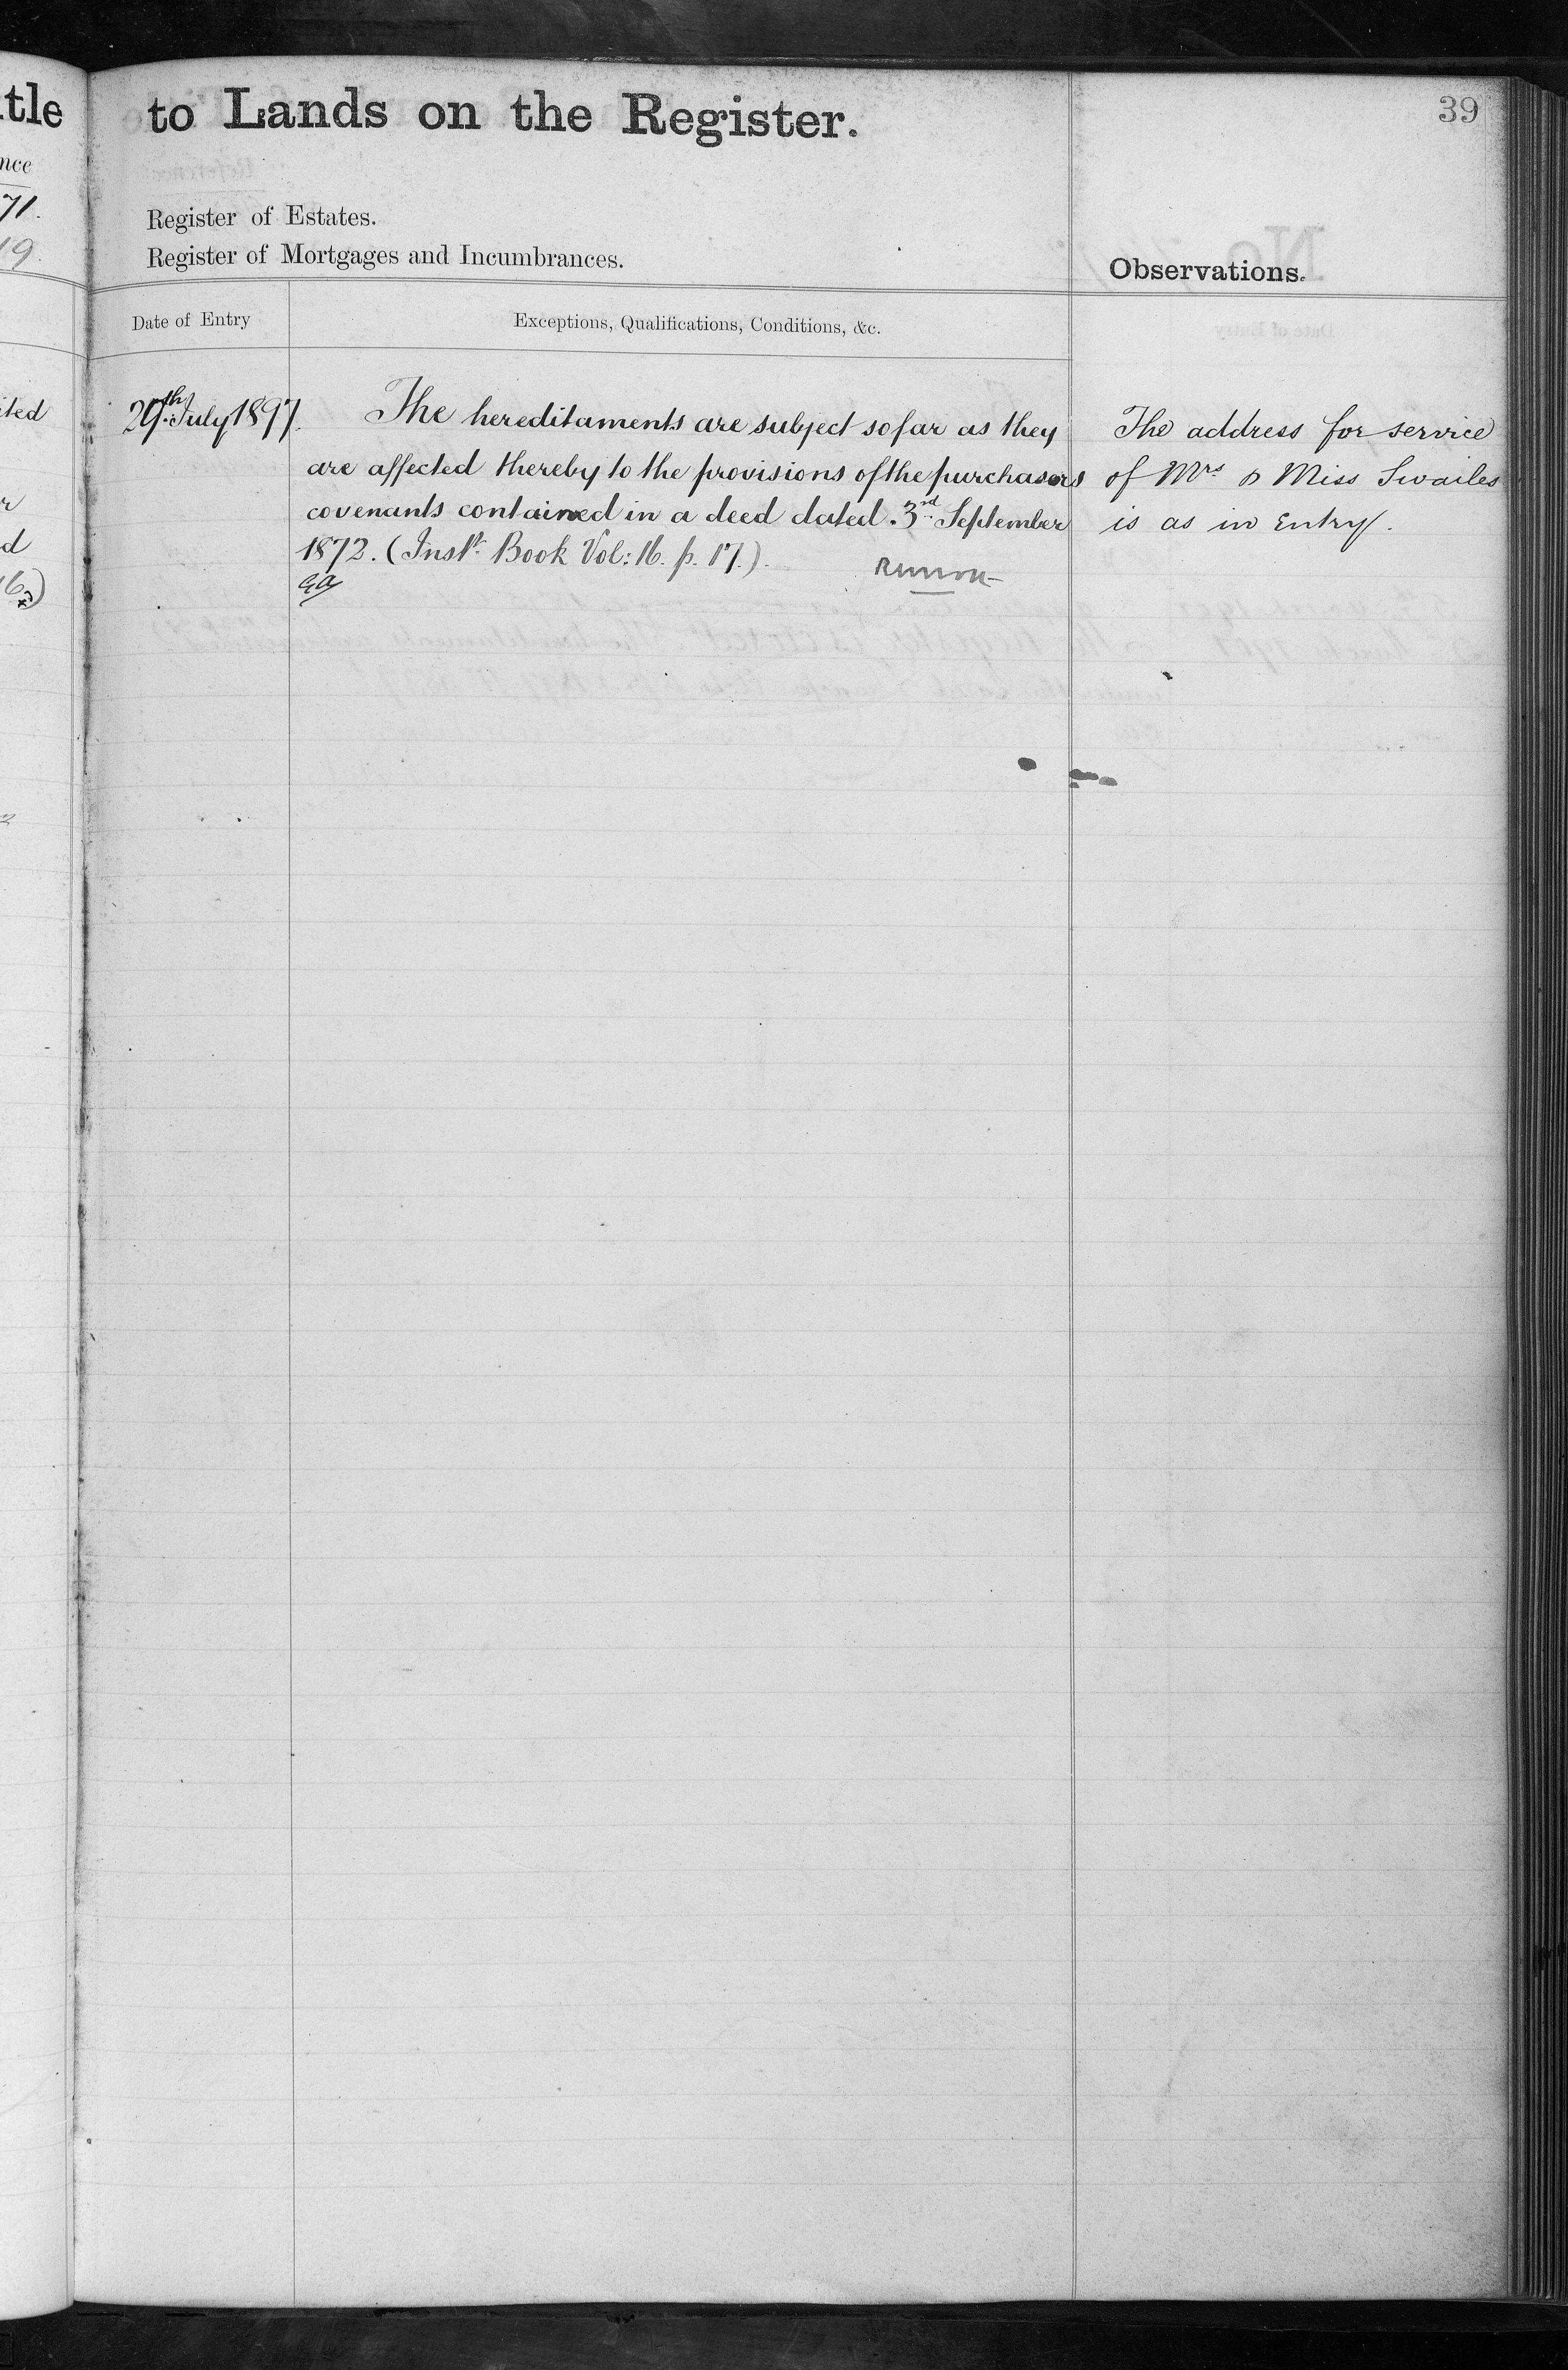 tle
to Lands on the Register.
39
nce
71.
19.
Register of Estates.
Register of Mortgages and Incumbrances.
Observations.
Date of Entry
Exceptions, Qualifications, Conditions, &c.
29th July 1897.
The hereditaments are subject so far as they
are affected thereby to the provisions of the purchasers
covenants contained in a deed dated 3rd September
1872. (Inst. Book Vol: 16. p. 17.)
The address for service
of Mrs & Miss Swailes
is as in Entry.